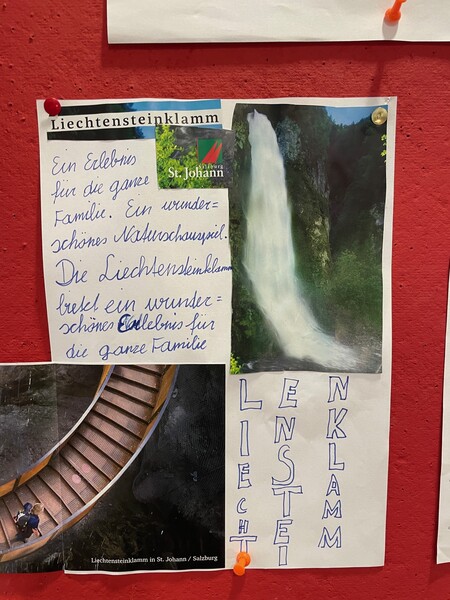 Liechtensteinklamm
SALZBURG
St. Johann
Ein Erlebnis
für die ganze
Familie. Ein wunder=
schönes Naturschauspiel.
Die Liechtensteinklamm
bietet ein wunder=
schönes Erlebnis für
die ganze Familie
LIECHT
ENSTEI
NKLAMM
Liechtensteinklamm in St. Johann / Salzburg